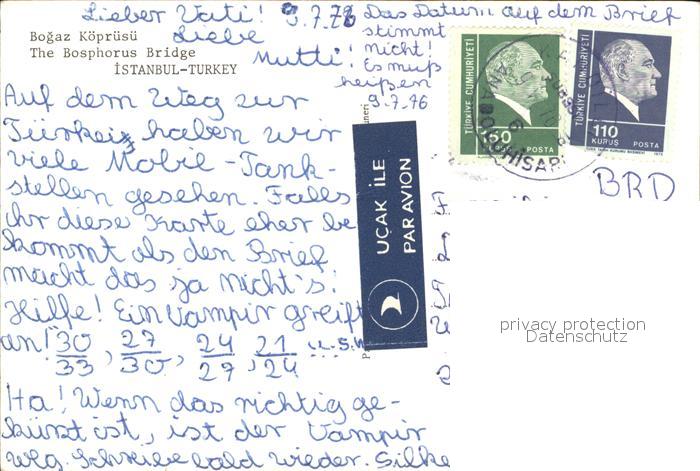 Lieber Vati! 9.7.76
Liebe
Mutti!
Boğaz Köprüsü
The Bosphorus Bridge
İSTANBUL-TURKEY
Das Datum auf dem Brief
stimmt
nicht!
Es muß
heißen
9.7.76
Auf dem Weg zur
Türkei haben wir
viele Mobil-Tank-
stellen gesehen. Falls
ihr diese Karte eher be
kommt als den Brief
macht das ja nicht's!
Hilfe! Ein Vampir greift
an! 30/33, 27/30, 24/27, 21/24 ... u.s.w
Ha! Wenn das richtig ge-
kürzt ist, ist der Vampir
weg. Schreibe bald wieder. Silke
UÇAK İLE
PAR AVION
TÜRKİYE CUMHURİYETİ
50
POSTA
TÜRKİYE CUMHURİYETİ
110
KURUŞ POSTA
HİSARI
BRD
privacy protection
Datenschutz